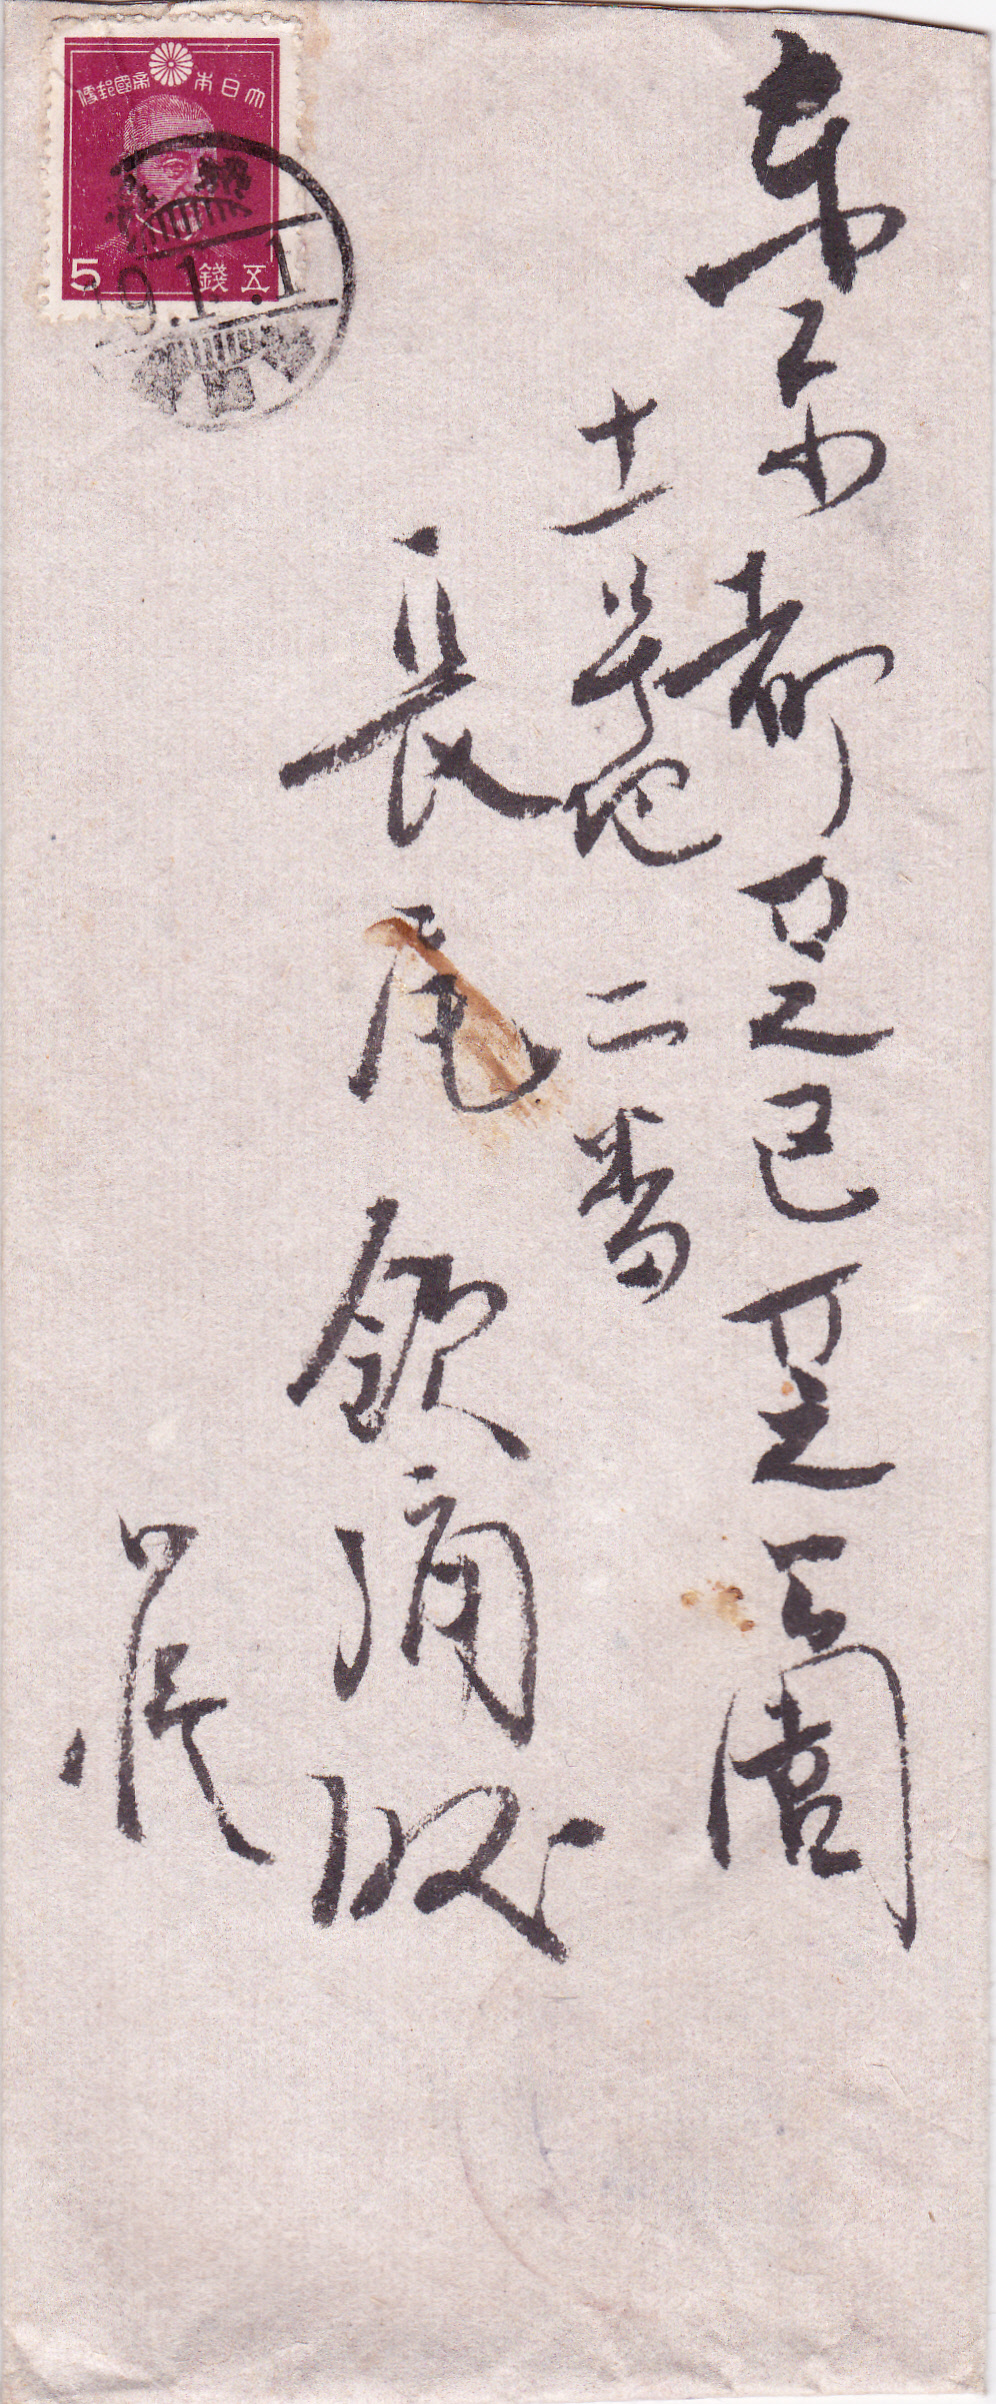 大日本帝國郵便
5 五錢
9.1.1
東京都芝区芝公園
十一号地二番
長尾欽彌殿